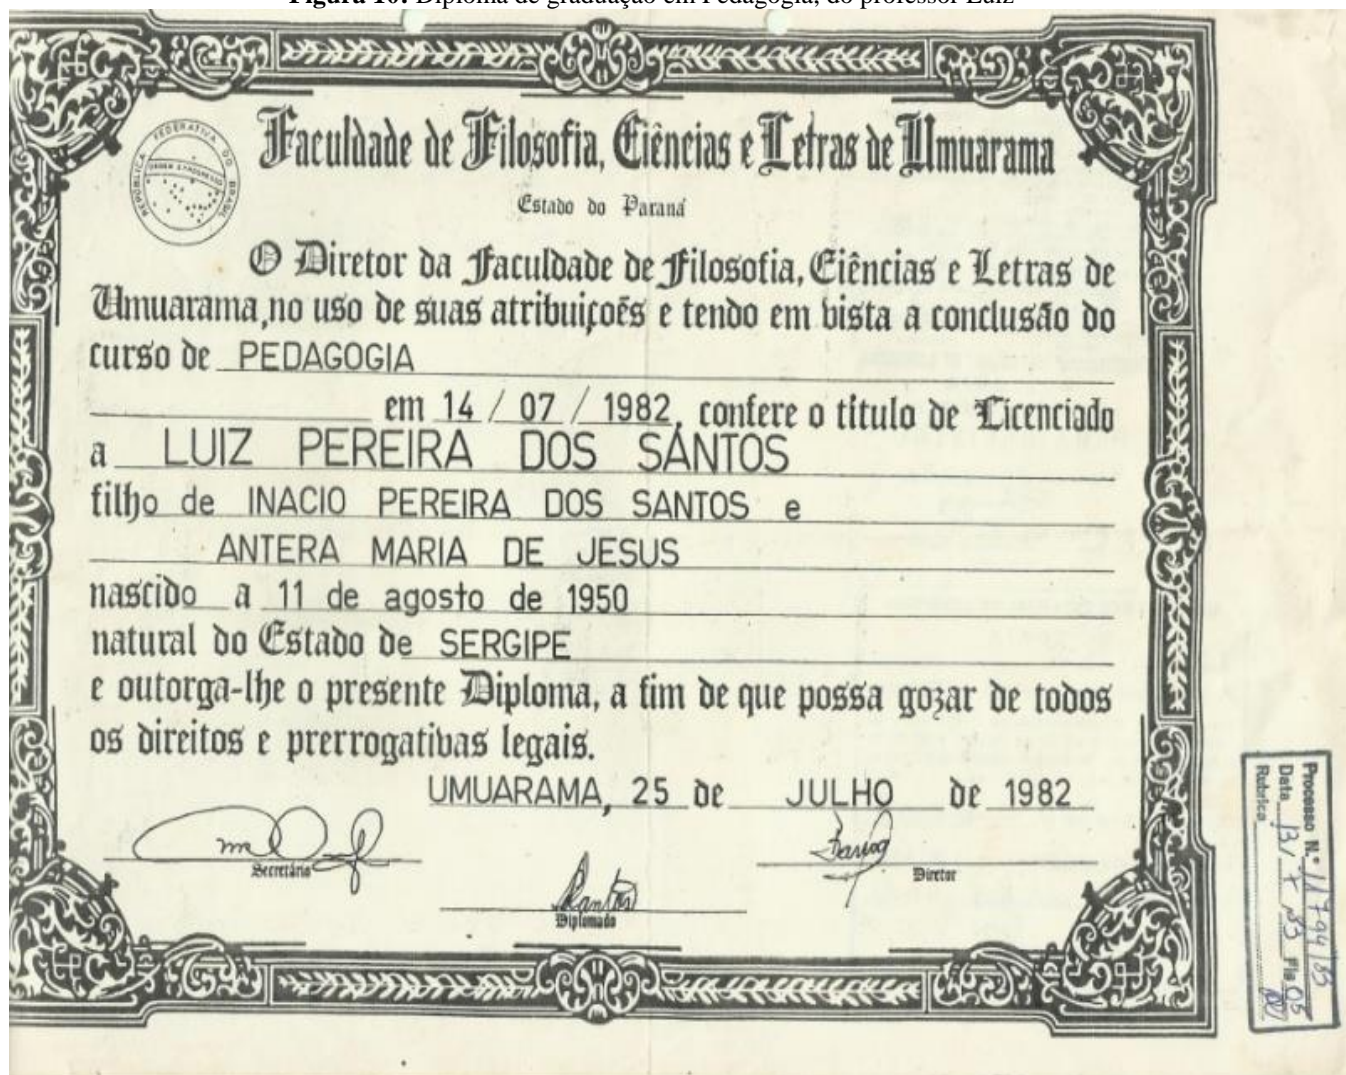 Figura 10: Diploma de graduação em Pedagogia, do professor Luiz
REPÚBLICA FEDERATIVA DO BRASIL
ORDEM E PROGRESSO
Faculdade de Filosofia, Ciências e Letras de Umuarama
Estado do Paraná
O Diretor da Faculdade de Filosofia, Ciências e Letras de
Umuarama, no uso de suas atribuiçoẽs e tendo em vista a conclusão do
curso de PEDAGOGIA
em 14 / 07 / 1982, confere o título de Licenciado
a LUIZ PEREIRA DOS SANTOS
filho de INACIO PEREIRA DOS SANTOS e
ANTERA MARIA DE JESUS
nascido a 11 de agosto de 1950
natural do Estado de SERGIPE
e outorga-lhe o presente Diploma, a fim de que possa gozar de todos
os direitos e prerrogativas legais.
UMUARAMA, 25 de JULHO de 1982
Secretário
Diretor
Santos
Diplomado
Processo N.º
Data Fls 05
Rubrica